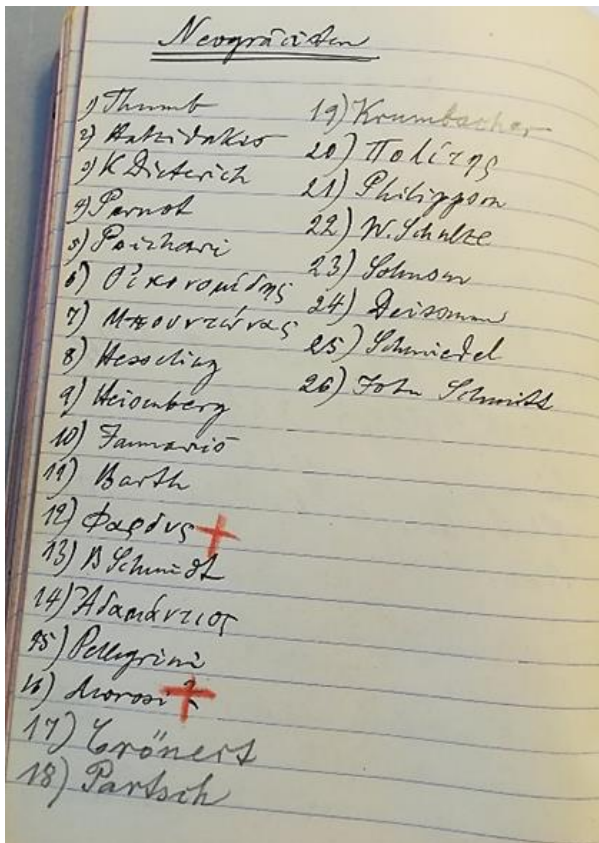 Neogräzisten
1) Thumb
2) Hatzidakis
3) K Dieterich
4) Pernot
5) Psichari
6) Οἰκονομίδης
7) Μπουντώνας
8) Hesseling
9) Heisenberg
10) Jannaris
11) Barth
12) Φαρδύς +
13) B Schmidt
14) Ἀδαμάντιος
15) Pellegrini
16) Morosi +
17) Crönert
18) Partsch
19) Krumbacher
20) Πολίτης
21) Philippson
22) W. Schulze
23) Solmsen
24) Deissmann
25) Schmiedel
26) John Schmitt